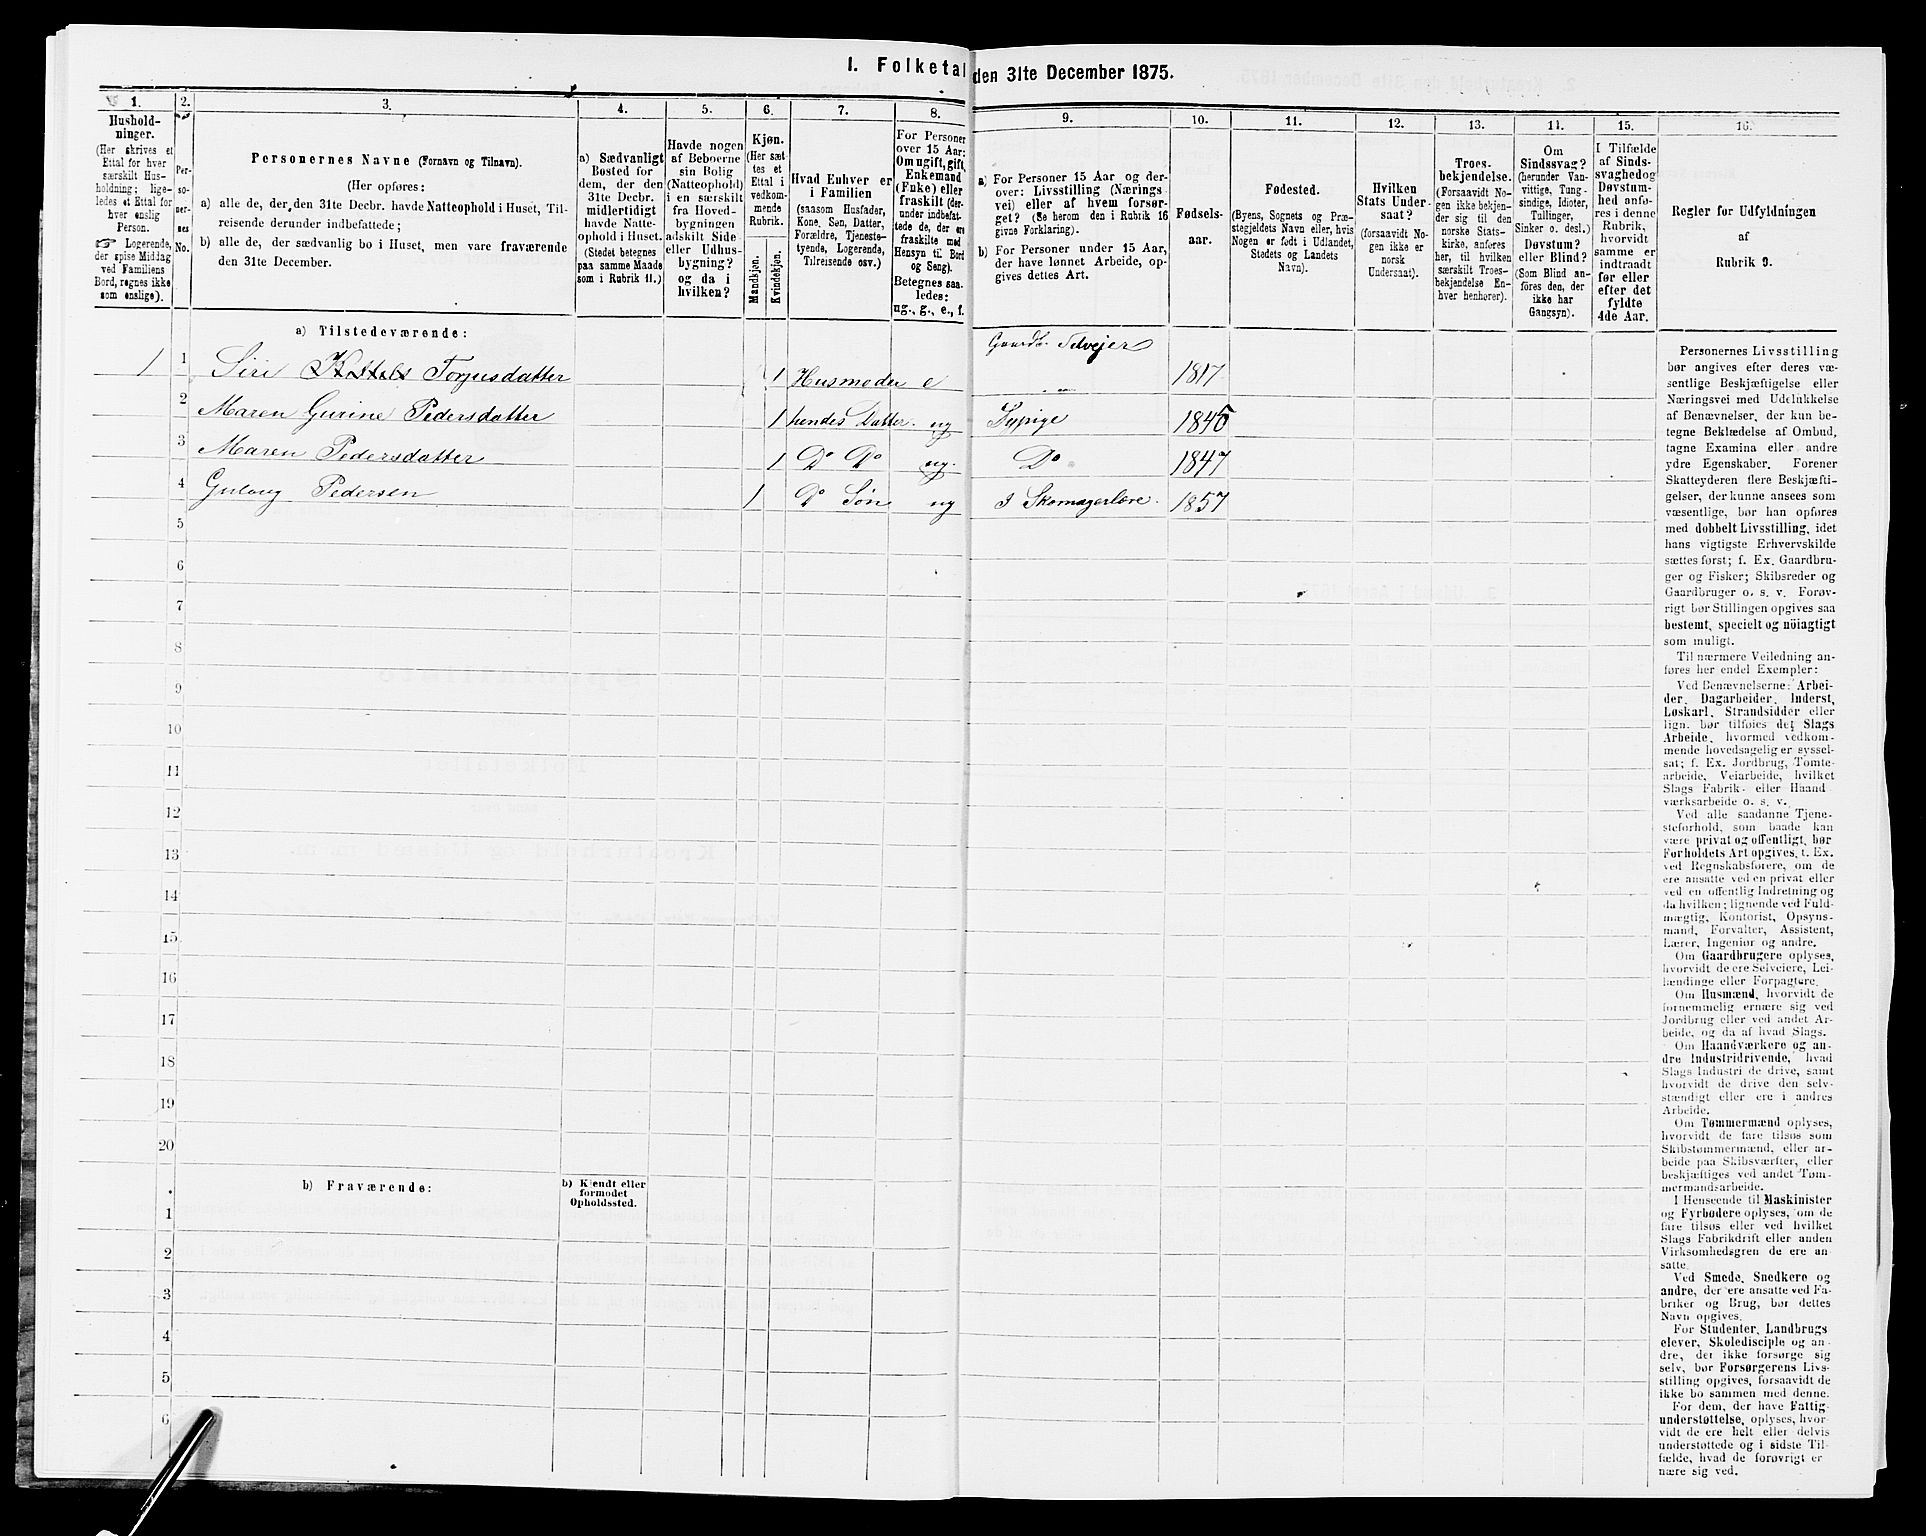 I. Folketal den 31te December 1875.
1. 2. 3. 4. 5. 6. 7. 8. 9. 10. 11. 12. 13. 14. 15. 16.
Hushold-
ninger.
(Her skrives et
Ettal for hver
særskilt Hus-
holdning; lige-
ledes et Ettal for
hver enslig
Person.
☞ Logerende,
der spise Middag
ved Familiens
Bord, regnes ikke
som enslige).
Per-
so-
ner-
nes
No.
Personernes Navne (Fornavn og Tilnavn).
(Her opføres:
a) alle de, der den 31te Decbr. havde Natteophold i Huset, Til-
reisende derunder indbefattede;
b) alle de, der sædvanlig bo i Huset, men vare fraværende
den 31te December.
a) Sædvanligt
Bosted for
dem, der den
31te Decbr.
midlertidigt
havde Natte-
ophold i Huset.
(Stedet betegnes
paa samme Maade
som i Rubrik 11.)
Havde nogen
af Beboerne
sin Bolig
(Natteophold)
i en særskilt
fra Hoved-
bygningen
adskilt Side-
eller Udhus-
bygning?
og da i
hvilken?
Kjøn.
(Her sæt-
tes et
Ettal i
vedkom-
mende
Rubrik.
Mandkjøn.
Kvindekjøn.
Hvad Enhver er
i Familien
(saasom Husfader,
Kone, Søn, Datter,
Forældre, Tjeneste-
tyende, Logerende,
Tilreisende osv.)
For Personer
over 15 Aar:
Om ugift, gift,
Enkemand
(Enke) eller
fraskilt (der-
under indbefat-
tede de, der ere
fraskilte med
Hensyn til Bord
og Seng).
Betegnes saa-
ledes:
ug., g., e., f.
a) For Personer 15 Aar og der-
over: Livsstilling (Nærings-
vei) eller af hvem forsør-
get? (Se herom den i Rubrik 16
givne Forklaring).
b) For Personer under 15 Aar,
der have lønnet Arbeide, op-
gives dettes Art.
Fødsels-
aar.
Fødested.
(Byens, Sognets og Præ-
stegjeldets Navn eller, hvis
Nogen er født i Udlandet,
Stedets og Landets
Navn).
Hvilken
Stats Under-
saat?
(forsaavidt No-
gen ikke er
norsk
Undersaat).
Troes-
bekjendelse.
(Forsaavidt No-
gen ikke bekjen-
der sig til den
norske Stats-
kirke, anføres
her, til hvilken
særskilt Troes-
bekjendelse En-
hver henhører).
Om
Sindssvag?
(herunder Van-
vittige, Tung-
sindige, Idioter,
Tullinger,
Sinker o. desl.)
Døvstum?
eller Blind?
(Som Blind an-
føres den, der
ikke har
Gangsyn).
I Tilfælde
af Sinds-
svaghed og
Døvstum-
hed anfø-
res i denne
Rubrik,
hvorvidt
samme er
indtraadt
før eller
efter det
fyldte
4de Aar.
Regler for Udfyldningen
af
Rubrik 9.
a) Tilstedeværende:
Gaardb. Selvejer
1 1 Siri Kittels Torjusdatter 1 Husmoder e „ „ 1817
2 Maren Gurine Pedersdatter 1 hendes Datter ug Sypige 1845
3 Maren Pedersdatter 1 Do Do ug. Do 1847
4 Guloug Pedersen 1 Do Søn ug I Skomagerlære. 1857
5
6
7
8
9
10
11
12
13
14
15
16
17
18
19
20
b) Fraværende:
b) Kjendt eller
formodet
Opholdssted.
1
2
3
4
5
6
Personernes Livsstilling
bør angives efter deres væ-
sentlige Beskjæftigelse eller
Næringsvei med Udelukkelse
af Benævnelser, der kun be-
tegne Beklædelse af Ombud,
tagne Examina eller andre
ydre Egenskaber. Forener
Skatteyderen flere Beskjæfti-
gelser, der kunne ansees som
væsentlige, bør han opføres
med dobbelt Livsstilling, idet
hans vigtigste Erhvervskilde
sættes først; f. Ex. Gaardbru-
ger og Fisker; Skibsreder og
Gaardbruger o. s. v. Forøv-
rigt bør Stillingen opgives saa
bestemt, specielt og nöiagtigt
som muligt.
Til nærmere Veiledning an-
føres her endel Exempler:
Ved Benævnelserne: Arbei-
der, Dagarbeider, Inderst,
Løskarl, Strandsidder eller
lign. bør tilføies det Slags
Arbeide, hvormed vedkom-
mende hovedsagelig er syssel-
sat; f. Ex. Jordbrug, Tomte-
arbeide, Veiarbeide, hvilket
Slags Fabrik- eller Haand-
værksarbeide o. s. v.
Ved alle saadanne Tjene-
steforhold, som baade kan
være privat og offentligt, bør
Forholdets Art opgives, f. Ex.
ved Regnskabsførere, om de
ere ansatte ved en privat eller
ved en offentlig Indretning og
da hvilken; lignende ved Fuld-
mægtig, Kontorist, Opsyns-
mand, Forvalter, Assistent,
Lærer, Ingeniør og andre.
Om Gaardbrugere oplyses,
hvorvidt de ere Selveiere, Lei-
lændinge eller Forpagtere.
Om Husmænd, hvorvidt de
fornemmelig ernære sig ved
Jordbrug eller ved andet Ar-
beide, og da af hvad Slags.
Om Haandværkere og an-
dre Industridrivende, hvad
Slags Industri de drive, samt
hvorvidt de drive den selv-
stændigt eller ere i andres
Arbeide.
Om Tømmermænd oplyses,
hvorvidt de fare tilsøs som
Skibstømmermænd, eller ar-
beide paa Skibsværfter, eller
beskjæftiges ved andet Tøm-
mermandsarbeide.
I Henseende til Maskinister
og Fyrbødere oplyses, om de
fare tilsøs eller ved hvilket
Slags Fabrikdrift eller anden
Virksomhedsgren de ere an-
satte.
Ved Smede, Snedkere og
andre, der ere ansatte ved Fa-
briker og Brug, bør dettes
Navn opgives.
For Studenter, Landbrugs-
elever, Skoledisciple og an-
dre, der ikke forsørge sig
selv, bør Forsørgerens Livs-
stilling opgives, forsaavidt de
ikke bo sammen med denne.
For dem, der have Fattig-
understøttelse, oplyses, hvor-
vidt de ere helt eller delvis
understøttede og i sidste Til-
fælde, hvad de forøvrigt er-
nære sig ved.